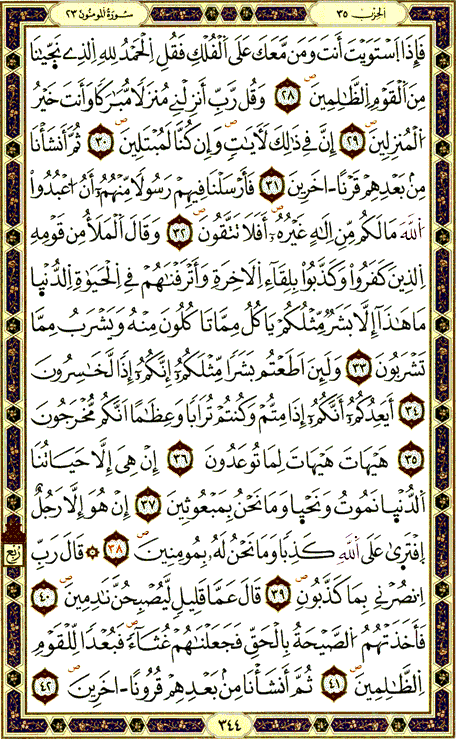 سُورَةُ الْمُومِنُونَ ٢٣
الحِزْب ٣٥
فَإِذَا اَسْتَوَيْتَ أَنتَ وَمَن مَّعَكَ عَلَى اَلْفُلْكِ فَقُلِ اِلْحَمْدُ لِلهِ اِلذِے نَجَّيٰنَا
مِنَ اَلْقَوْمِ اِلظَّٰلِمِينَ ٢٨ وَقُل رَّبِّ أَنزِلْنِے مُنزَلًا مُّبَٰرَكًا وَأَنتَ خَيْرُ
اُلْمُنزِلِينَ ٢٩ إِنَّ فِے ذَٰلِكَ لَأٓيَٰتٍ وَإِن كُنَّا لَمُبْتَلِينَ ٣٠ ثُمَّ أَنشَأْنَا
مِنۢ بَعْدِهِمْ قَرْنًا ـ اخَرِينَ ٣١ فَأَرْسَلْنَا فِيهِمْ رَسُولًا مِّنْهُمُۥٓ أَنُ اُعْبُدُوا۟
اُللَّهَ مَا لَكُم مِّنِ اِلَٰهٍ غَيْرُهُۥٓ أَفَلَا تَتَّقُونَ ٣٢ وَقَالَ اَلْمَلَأُ مِن قَوْمِهِ
اِلذِينَ كَفَرُوا۟ وَكَذَّبُوا۟ بِلِقَآءِ اِلَاخِرَةِ وَأَتْرَفْنَٰهُمْ فِے اِلْحَيَوٰةِ اِلدُّنْي۪ا
مَا هَٰذَآ إِلَّا بَشَرٌ مِّثْلُكُمْ يَاكُلُ مِمَّا تَاكُلُونَ مِنْهُ وَيَشْرَبُ مِمَّا
تَشْرَبُونَ ٣٣ وَلَئِنَ اَطَعْتُم بَشَرًا مِّثْلَكُمُۥٓ إِنَّكُمُۥٓ إِذًا لَّخَٰسِرُونَ
٣٤ أَيَعِدُكُمُۥٓ أَنَّكُمُۥٓ إِذَا مِتُّمْ وَكُنتُمْ تُرَابًا وَعِظَٰمًا اَنَّكُم مُّخْرَجُونَ
٣٥ هَيْهَاتَ هَيْهَاتَ لِمَا تُوعَدُونَ ٣٦ إِنْ هِىَ إِلَّا حَيَاتُنَا
اَلدُّنْي۪ا نَمُوتُ وَنَحْي۪ا وَمَا نَحْنُ بِمَبْعُوثِينَ ٣٧ إِنْ هُوَ إِلَّا رَجُلٌ
اِفْتَر۪ىٰ عَلَى اَللَّهِ كَذِبًا وَمَا نَحْنُ لَهُۥ بِمُومِنِينَ ٣٨ ۞ قَالَ رَبِّ
اِنصُرْنِے بِمَا كَذَّبُونِ ٣٩ قَالَ عَمَّا قَلِيلٍ لَّيُصْبِحُنَّ نَٰدِمِينَ ٤٠
فَأَخَذَتْهُمُ اُلصَّيْحَةُ بِالْحَقِّ فَجَعَلْنَٰهُمْ غُثَآءً فَبُعْدًا لِّلْقَوْمِ
اِلظَّٰلِمِينَ ٤١ ثُمَّ أَنشَأْنَا مِنۢ بَعْدِهِمْ قُرُونًا ـ اخَرِينَ ٤٢
ربع
٣٤٤